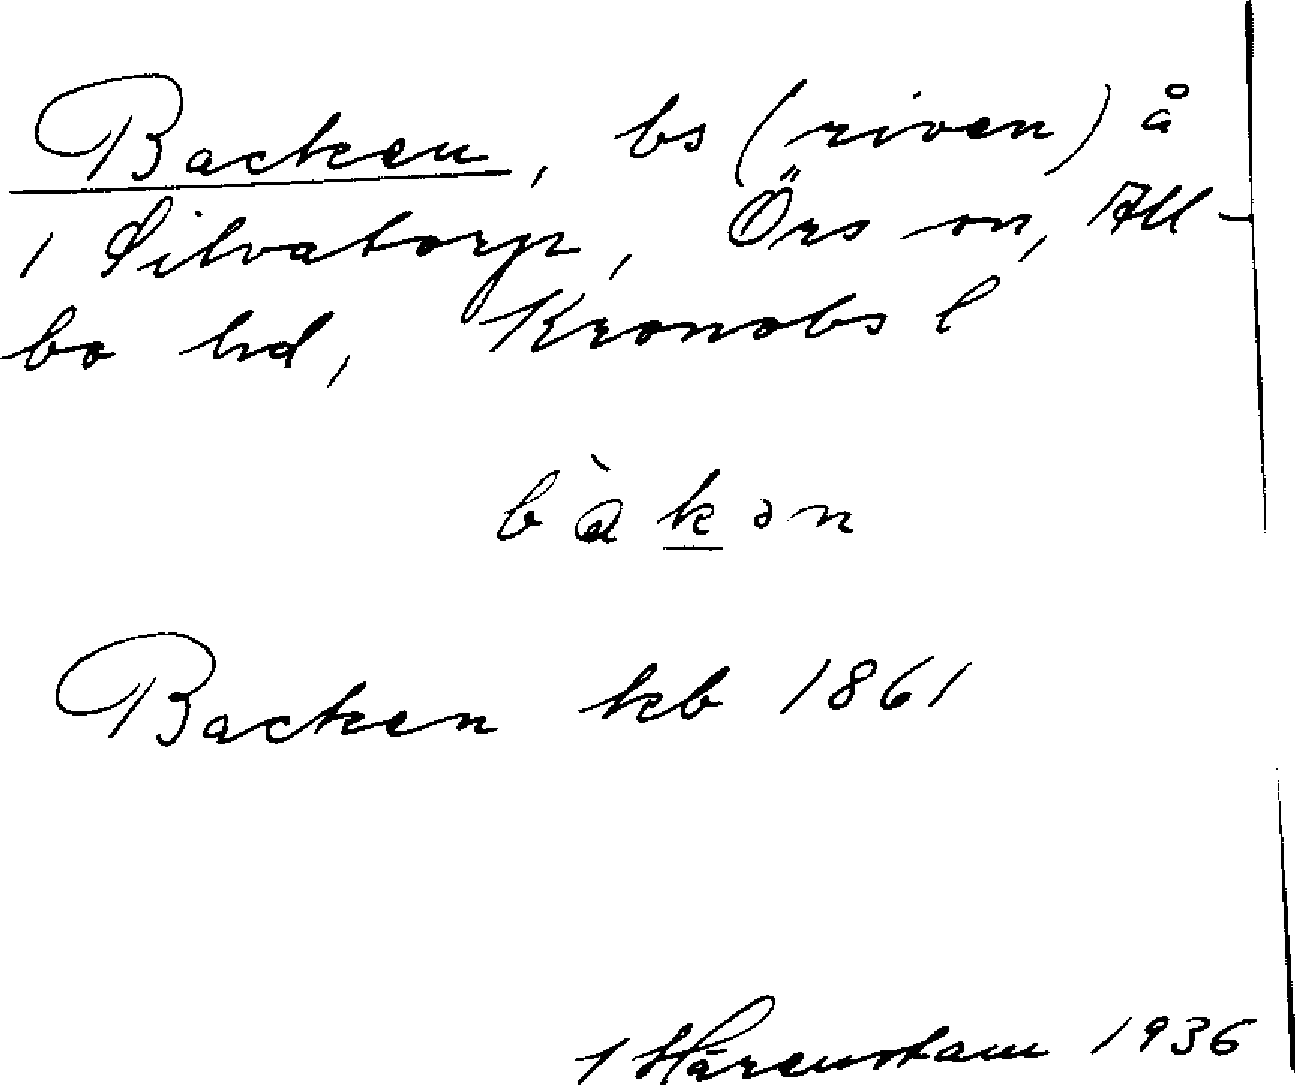 Backen, bs (riven) å
1 Silvatorp, Örs sn, All-
bo hd, Kronobs l
bàkən
Backen kb 1861
Härenstam 1936